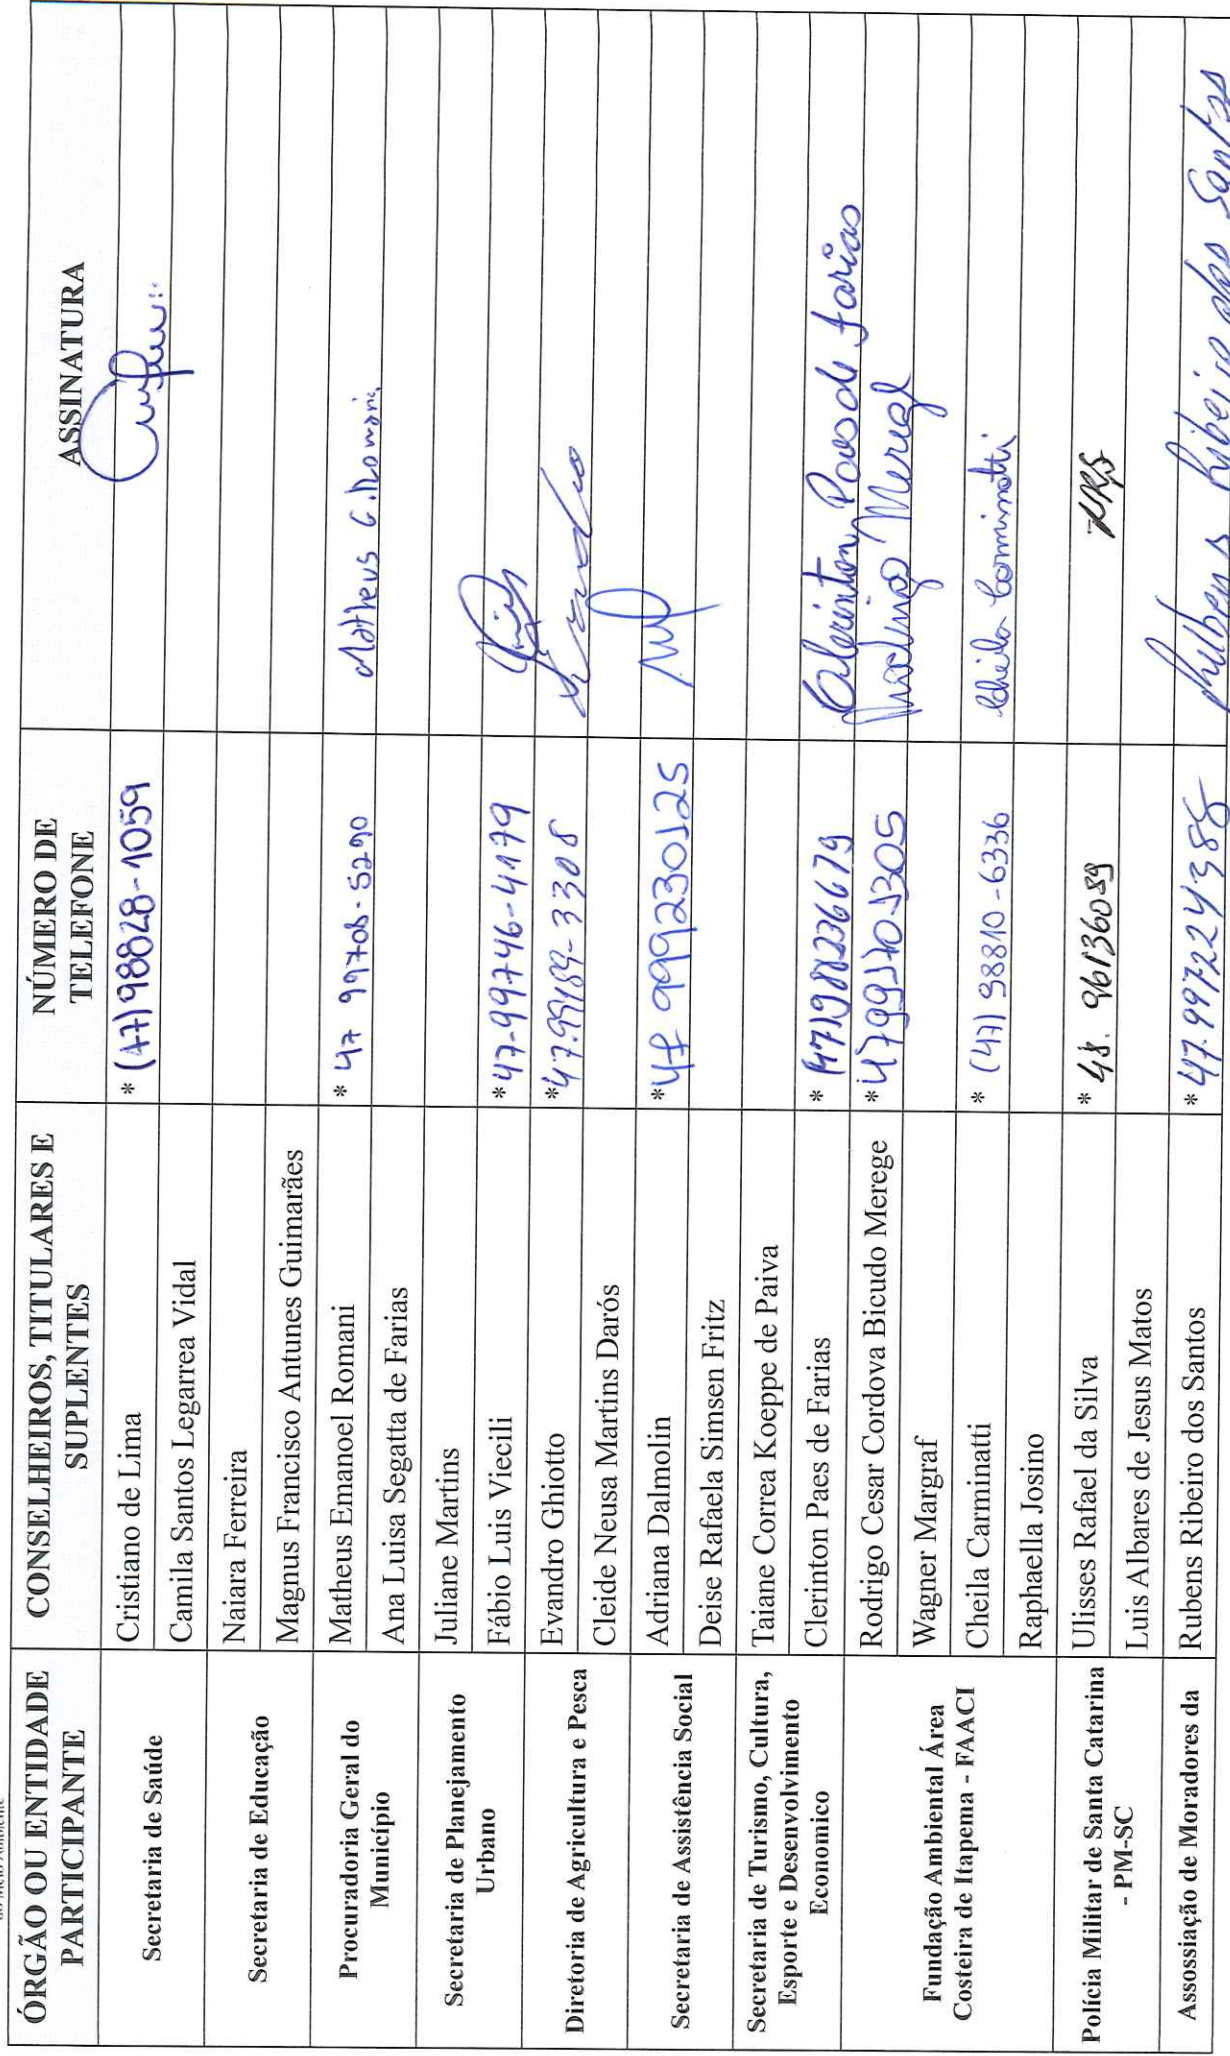 do Meio Ambiente
ÓRGÃO OU ENTIDADE PARTICIPANTE CONSELHEIROS, TITULARES E SUPLENTES NÚMERO DE TELEFONE ASSINATURA
Secretaria de Saúde
Cristiano de Lima * (47) 98828-1059
Camila Santos Legarrea Vidal
Secretaria de Educação
Naiara Ferreira
Magnus Francisco Antunes Guimarães
Procuradoria Geral do Município
Matheus Emanoel Romani * 47 99708-5290 Matheus E. Romani
Ana Luisa Segatta de Farias
Secretaria de Planejamento Urbano
Juliane Martins
Fábio Luis Viecili * 47-99746-4179
Diretoria de Agricultura e Pesca
Evandro Ghiotto * 47.99189-3308
Cleide Neusa Martins Darós
Secretaria de Assistência Social
Adriana Dalmolin * 47 999230125
Deise Rafaela Simsen Fritz
Secretaria de Turismo, Cultura, Esporte e Desenvolvimento Economico
Taiane Correa Koeppe de Paiva
Clerinton Paes de Farias * (47) 988236679 Clerinton Paes de Farias
Fundação Ambiental Área Costeira de Itapema - FAACI
Rodrigo Cesar Cordova Bicudo Merege * 47991701305 Rodrigo Merege
Wagner Margraf
Cheila Carminatti * (47) 98810-6336 Cheila Carminatti
Raphaella Josino
Polícia Militar de Santa Catarina - PM-SC
Ulisses Rafael da Silva * 48. 96136089 URS
Luis Albares de Jesus Matos
Assossiação de Moradores da
Rubens Ribeiro dos Santos * 47.997224388 Rubens Ribeiro dos Santos